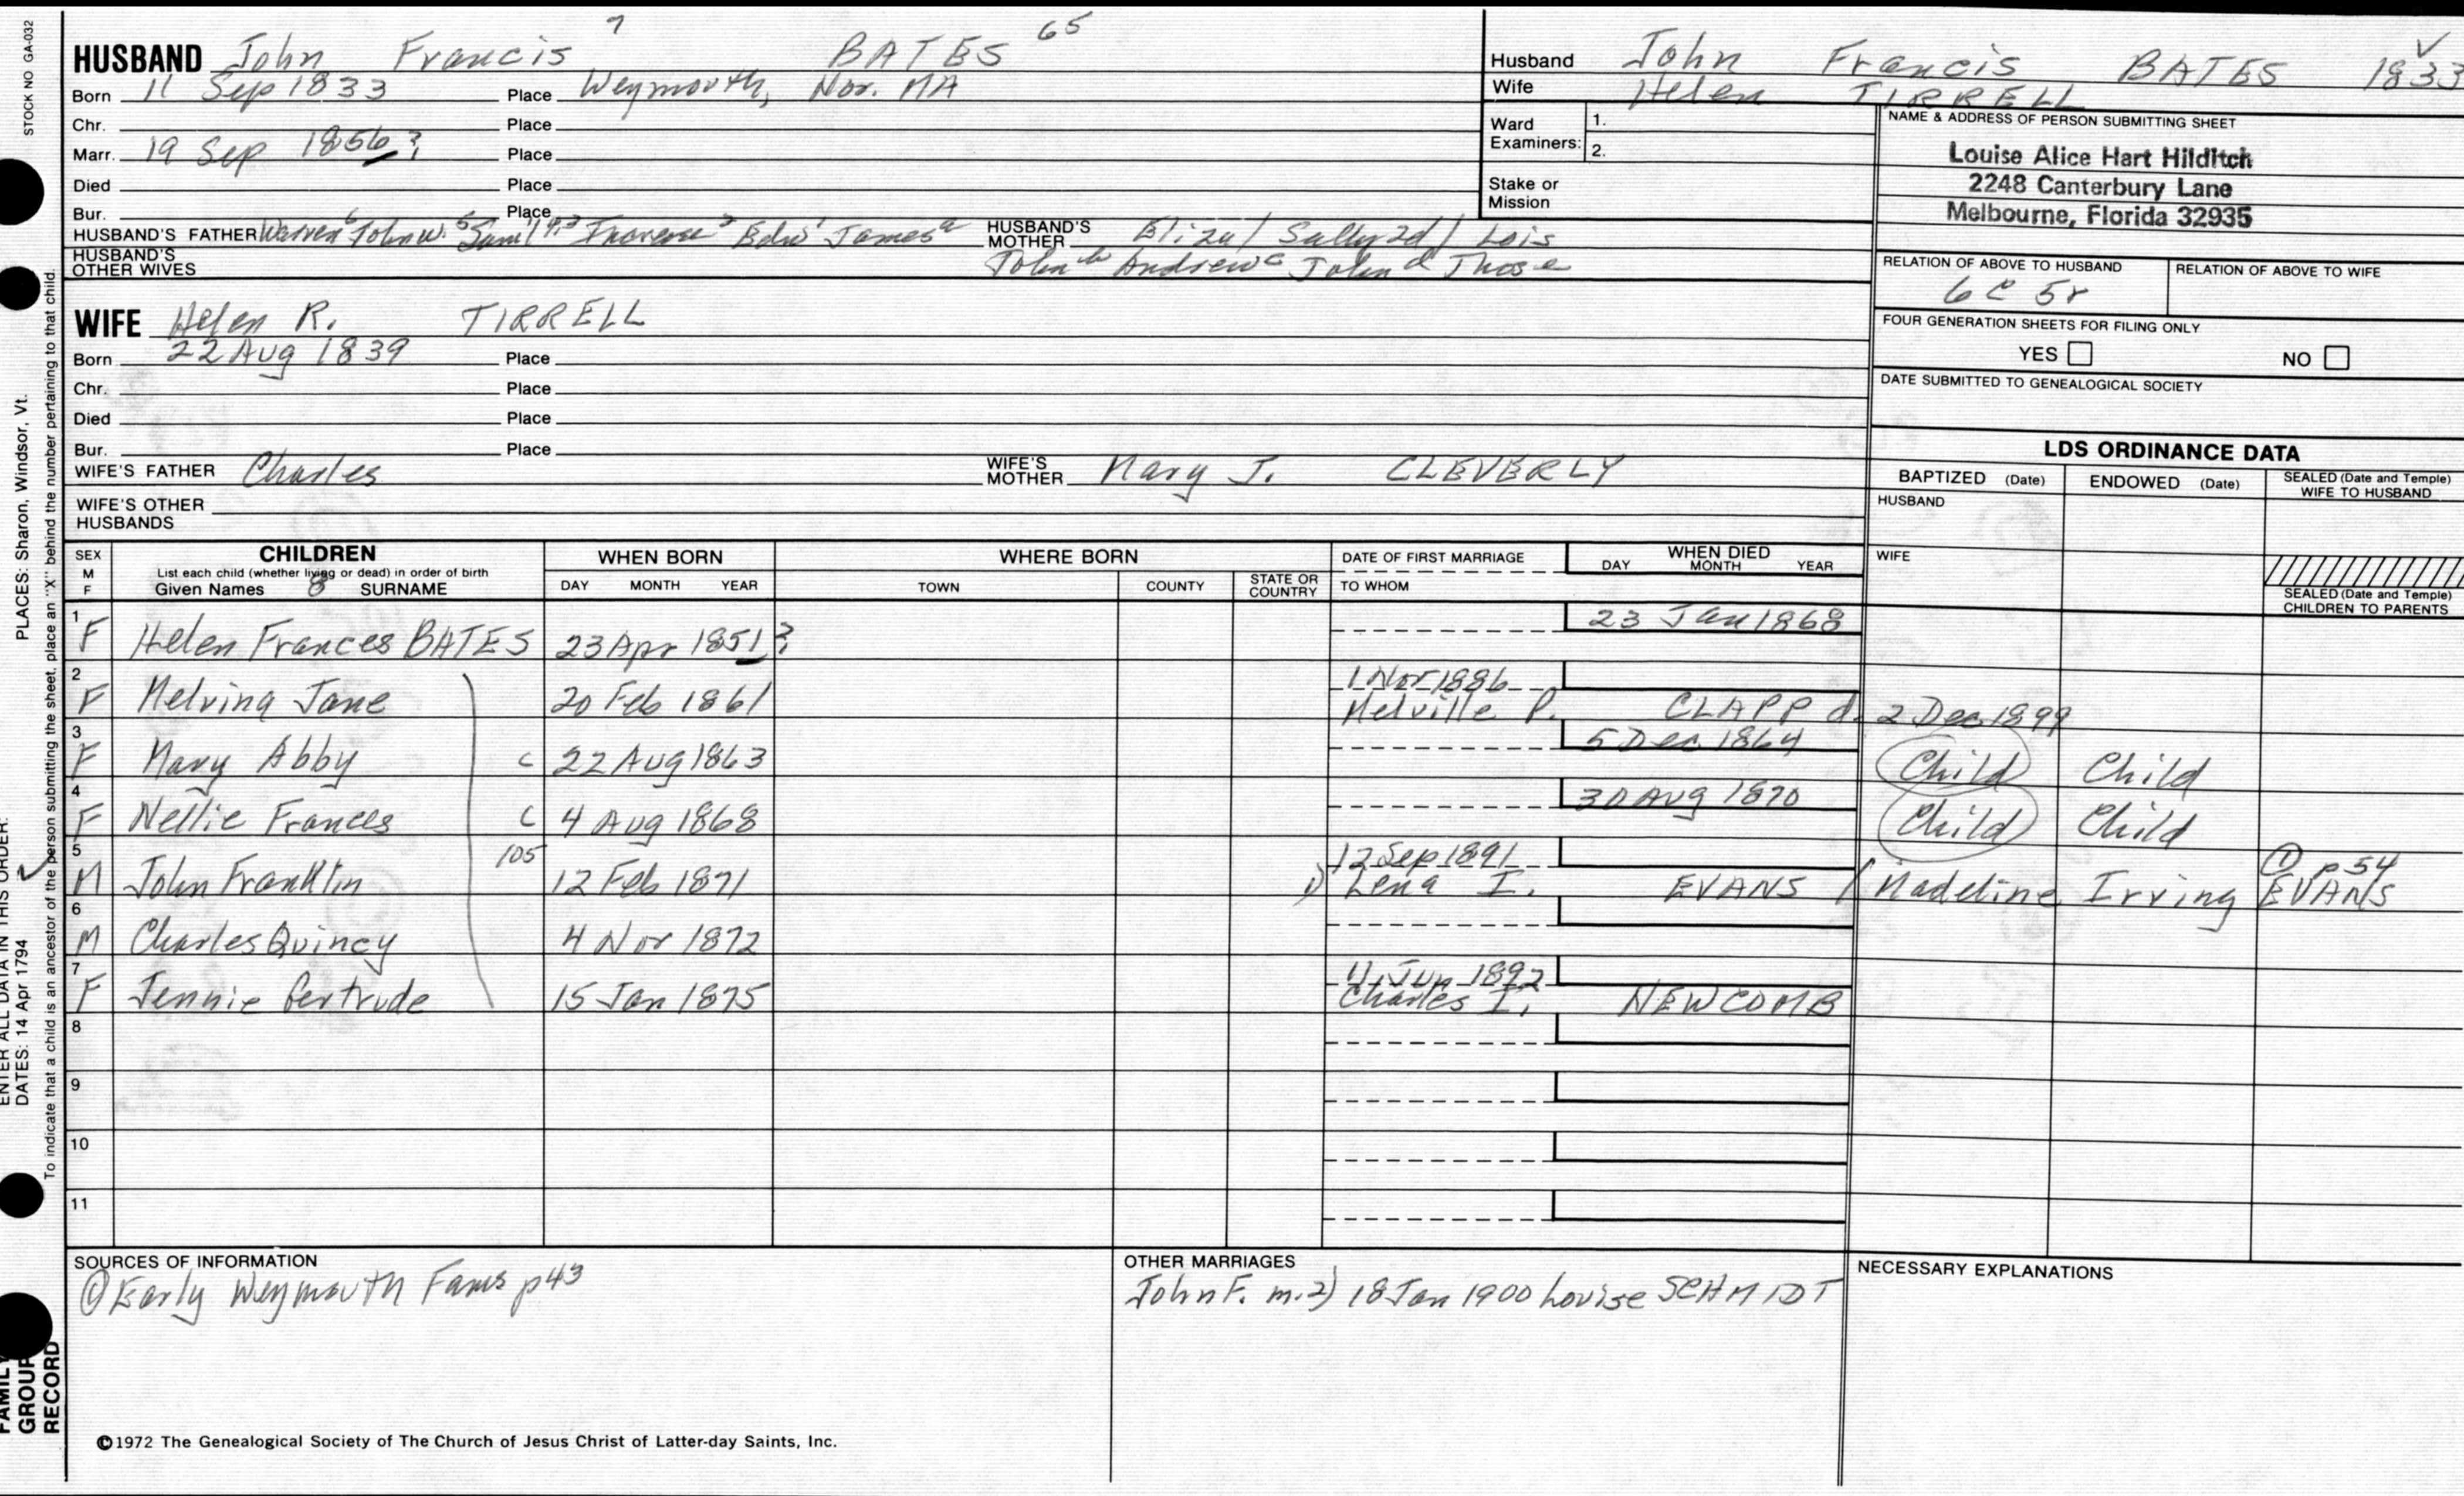 STOCK NO GA-032
HUSBAND John Francis 7 BATES 65
Born 11 Sep 1833 Place Weymouth, Nor. MA
Chr. Place
Marr. 19 Sep 1856? Place
Died Place
Bur. Place
HUSBAND'S FATHER Warren 6 John W. 5 Saml 4,3 Increase 2 Edw 1 James a HUSBAND'S MOTHER Eliza / Sally 2d / Lois
HUSBAND'S OTHER WIVES John b Andrew c John d Thos e
Husband John Francis BATES 1833
Wife Helen TIRRELL
Ward Examiners: 1.
2.
Stake or Mission
NAME & ADDRESS OF PERSON SUBMITTING SHEET
Louise Alice Hart Hilditch
2248 Canterbury Lane
Melbourne, Florida 32935
RELATION OF ABOVE TO HUSBAND RELATION OF ABOVE TO WIFE
6C 5r
FOUR GENERATION SHEETS FOR FILING ONLY
YES NO
DATE SUBMITTED TO GENEALOGICAL SOCIETY
WIFE Helen R. TIRRELL
Born 22 Aug 1839 Place
Chr. Place
Died Place
Bur. Place
WIFE'S FATHER Charles WIFE'S MOTHER Mary J. CLEVERLY
WIFE'S OTHER HUSBANDS
LDS ORDINANCE DATA
BAPTIZED (Date) ENDOWED (Date) SEALED (Date and Temple) WIFE TO HUSBAND
HUSBAND
WIFE
SEALED (Date and Temple) CHILDREN TO PARENTS
SEX M F CHILDREN WHEN BORN WHERE BORN DATE OF FIRST MARRIAGE WHEN DIED
List each child (whether living or dead) in order of birth
Given Names 8 SURNAME DAY MONTH YEAR TOWN COUNTY STATE OR COUNTRY TO WHOM DAY MONTH YEAR
1 F Helen Frances BATES 23 Apr 1851? 23 Jan 1868
2 F Melvina Jane 20 Feb 1861 1 Nov 1886
Melville P. CLAPP d. 2 Dec 1899
3 F Mary Abby c 22 Aug 1863 5 Dec 1864 Child Child
4 F Nellie Frances c 4 Aug 1868 30 Aug 1870 Child Child
5 M John Franklin 105 12 Feb 1871 12 Sep 1891
1) Lena I. EVANS / Madeline Irving EVANS ① p54
6 M Charles Quincy 4 Nov 1872
7 F Jennie Gertrude 15 Jan 1875 11 Jun 1892
Charles I. NEWCOMB
8
9
10
11
SOURCES OF INFORMATION
① Early Weymouth Fams p43
OTHER MARRIAGES
John F. m.2) 18 Jan 1900 Louise SCHMIDT
NECESSARY EXPLANATIONS
©1972 The Genealogical Society of The Church of Jesus Christ of Latter-day Saints, Inc.
PLACES: Sharon, Windsor, Vt.
ENTER ALL DATA IN THIS ORDER:
DATES: 14 Apr 1794
To indicate that a child is an ancestor of the person submitting the sheet, place an "X" behind the number pertaining to that child.
FAMILY GROUP RECORD